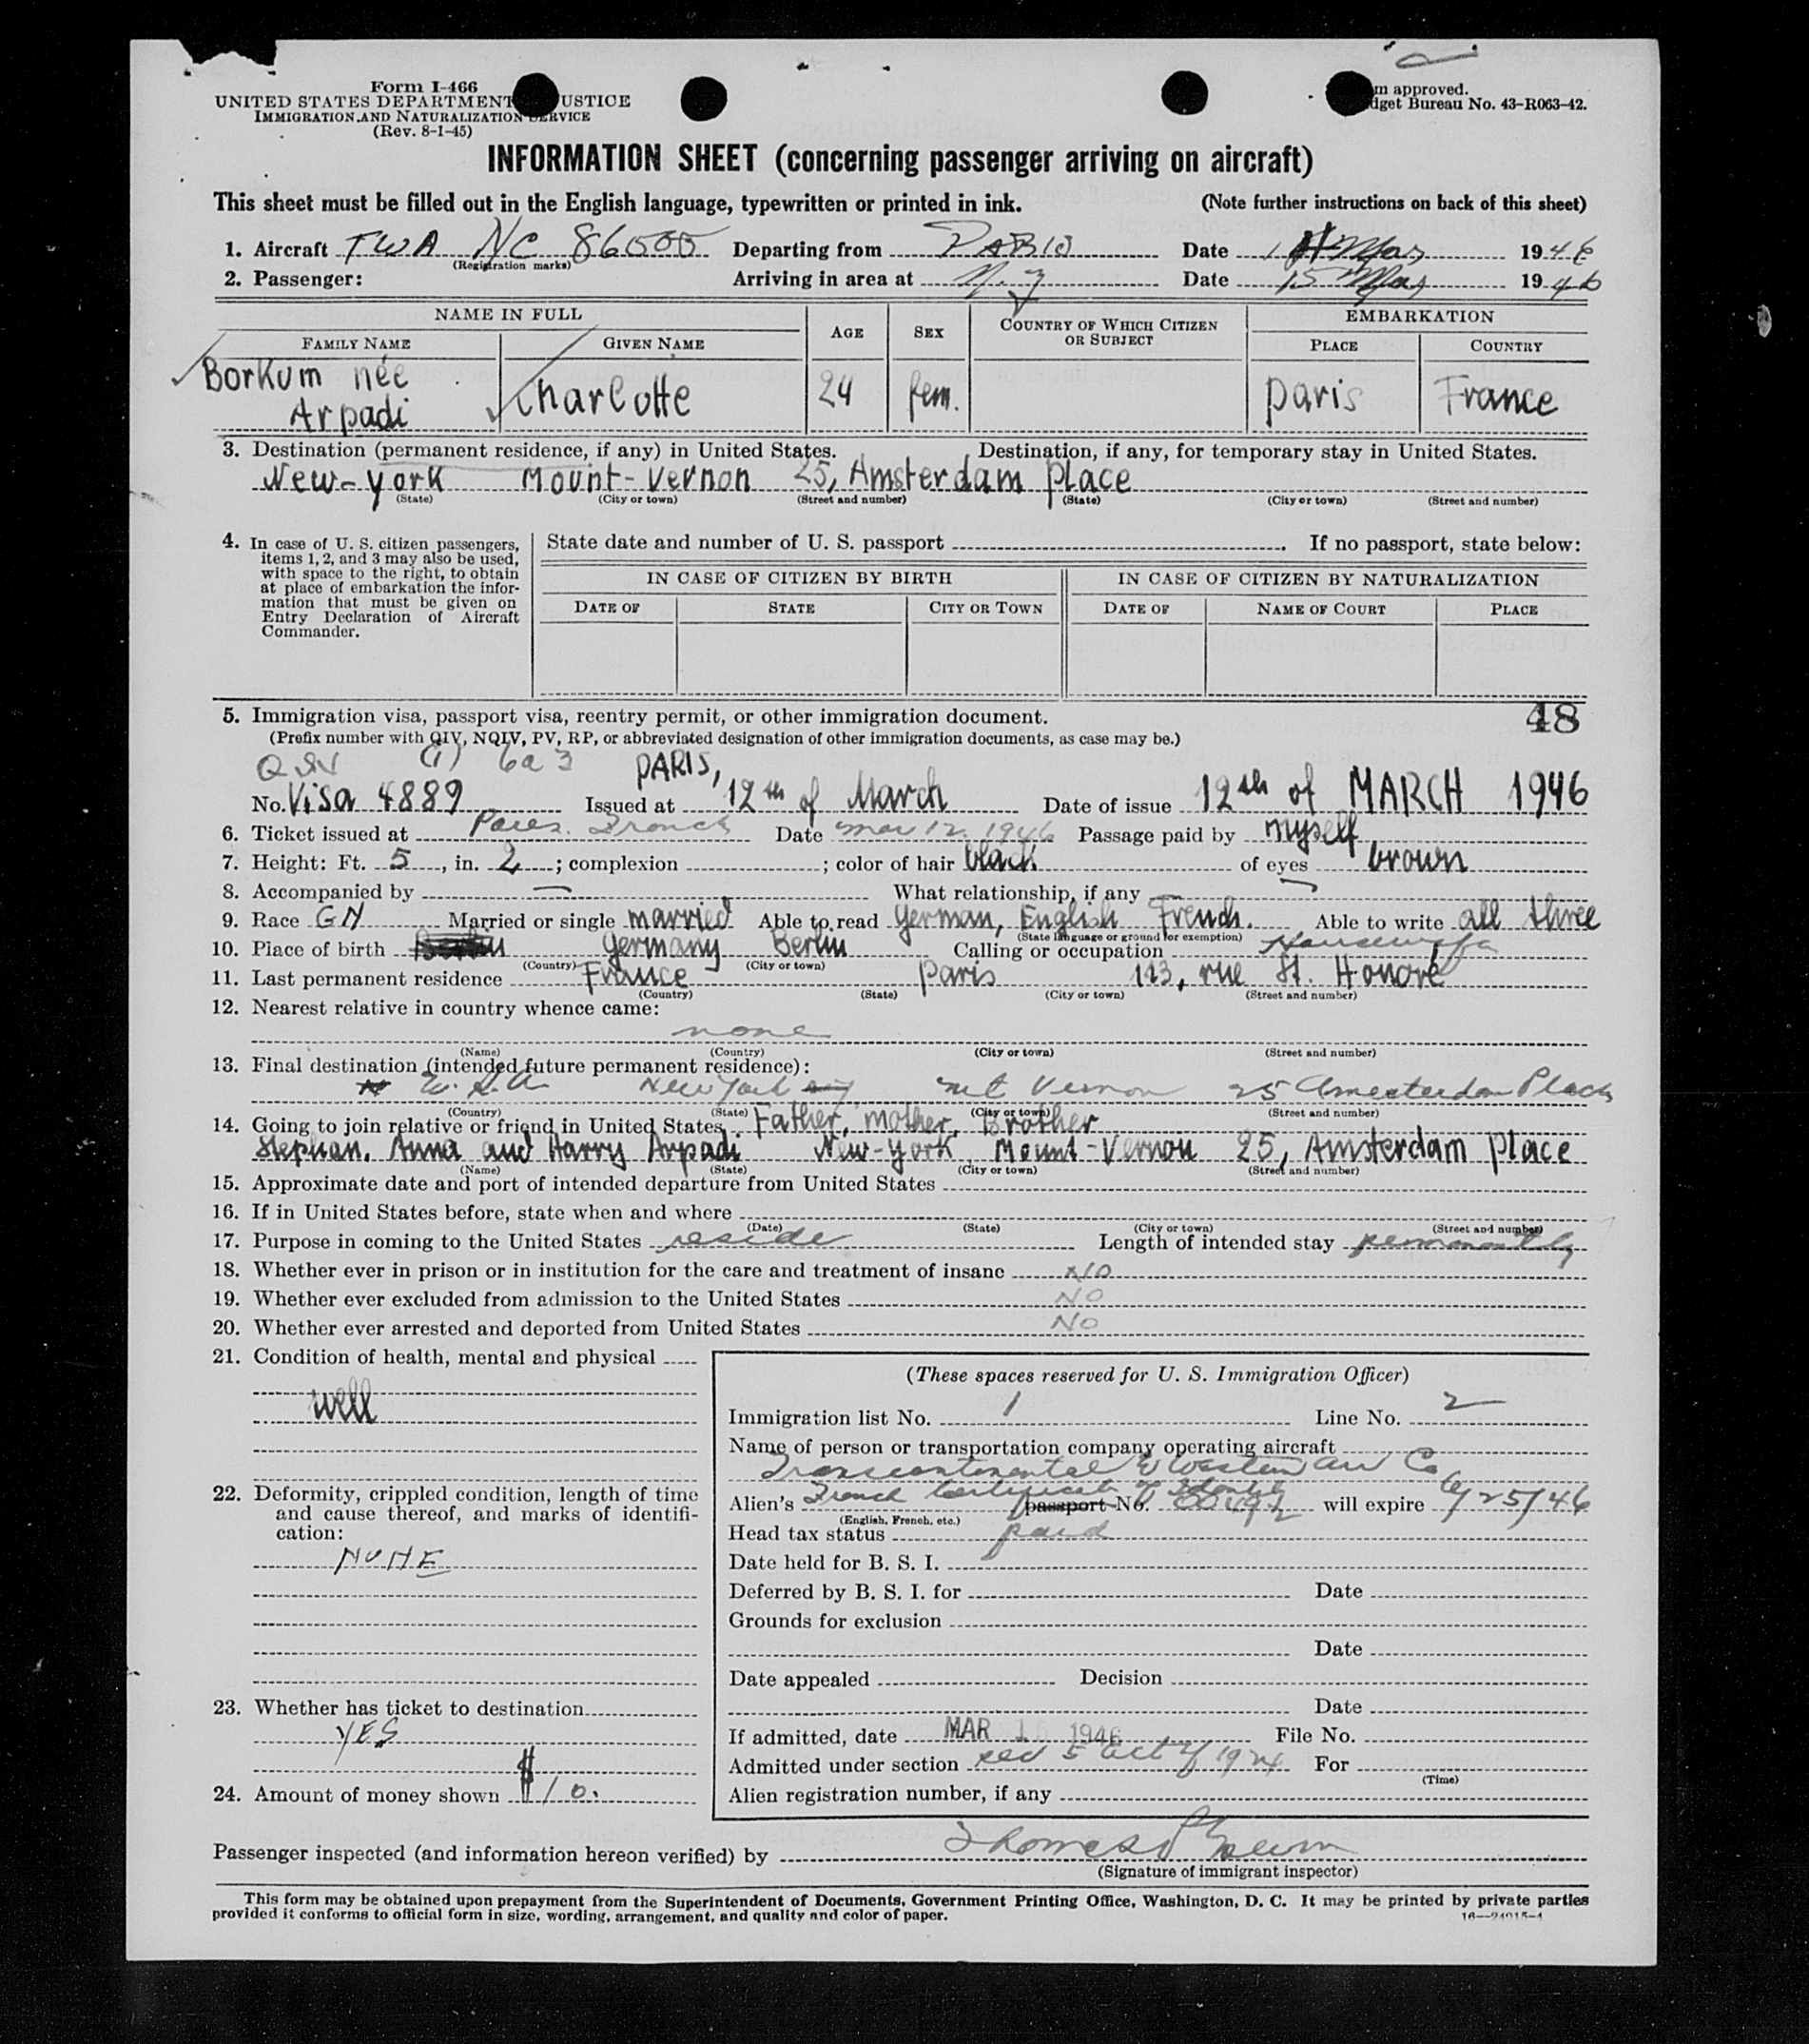 Form I-466
UNITED STATES DEPARTMENT USTICE
IMMIGRATION AND NATURALIZATION SERVICE
(Rev. 8-1-45)
m approved.
dget Bureau No. 43-R063-42.
INFORMATION SHEET (concerning passenger arriving on aircraft)
This sheet must be filled out in the English language, typewritten or printed in ink. (Note further instructions on back of this sheet)
1. Aircraft TWA NC 86505 Departing from PARIS Date Mar 1946
(Registration marks)
2. Passenger: Arriving in area at N.Y Date 15 Mar 1946
NAME IN FULL AGE SEX COUNTRY OF WHICH CITIZEN OR SUBJECT EMBARKATION
FAMILY NAME GIVEN NAME PLACE COUNTRY
Borkum née Charlotte 24 fem. Paris France
Arpadi
3. Destination (permanent residence, if any) in United States. Destination, if any, for temporary stay in United States.
New-York Mount-Vernon 25, Amsterdam Place
(State) (City or town) (Street and number) (State) (City or town) (Street and number)
4. In case of U. S. citizen passengers, items 1, 2, and 3 may also be used, with space to the right, to obtain at place of embarkation the information that must be given on Entry Declaration of Aircraft Commander.
State date and number of U. S. passport . If no passport, state below:
IN CASE OF CITIZEN BY BIRTH IN CASE OF CITIZEN BY NATURALIZATION
DATE OF STATE CITY OR TOWN DATE OF NAME OF COURT PLACE
48
5. Immigration visa, passport visa, reentry permit, or other immigration document.
(Prefix number with QIV, NQIV, PV, RP, or abbreviated designation of other immigration documents, as case may be.)
QIV (1) 6a3 PARIS,
No. Visa 4889 Issued at 12th of March Date of issue 12th of MARCH 1946
6. Ticket issued at Paris France Date Mar 12, 1946 Passage paid by myself
7. Height: Ft. 5, in. 2; complexion ; color of hair black of eyes brown
8. Accompanied by — What relationship, if any —
9. Race GM Married or single married Able to read German, English French. Able to write all three
(State language or ground for exemption)
10. Place of birth Germany Berlin Calling or occupation Housewife
(Country) (City or town)
11. Last permanent residence France Paris 123, rue St. Honoré
(Country) (State) (City or town) (Street and number)
12. Nearest relative in country whence came:
none
(Name) (Country) (City or town) (Street and number)
13. Final destination (intended future permanent residence):
U.S.A New York Mt Vernon 25 Amesterdam Place
(Country) (State) (City or town) (Street and number)
14. Going to join relative or friend in United States Father, mother, Brother
Stephan, Anna and Harry Arpadi New-York Mount-Vernon 25, Amsterdam Place
(Name) (State) (City or town) (Street and number)
15. Approximate date and port of intended departure from United States
16. If in United States before, state when and where
(Date) (State) (City or town) (Street and number)
17. Purpose in coming to the United States reside Length of intended stay permanently
18. Whether ever in prison or in institution for the care and treatment of insane NO
19. Whether ever excluded from admission to the United States NO
20. Whether ever arrested and deported from United States NO
21. Condition of health, mental and physical
well
22. Deformity, crippled condition, length of time and cause thereof, and marks of identification:
NONE
23. Whether has ticket to destination
YES
24. Amount of money shown $10.
(These spaces reserved for U. S. Immigration Officer)
Immigration list No. 1 Line No. 2
Name of person or transportation company operating aircraft
Transcontinental & Western Air Co
Alien's French Certificate of Identity passport No. will expire 6/25/46
(English, French, etc.)
Head tax status paid
Date held for B. S. I.
Deferred by B. S. I. for Date
Grounds for exclusion
Date
Date appealed Decision
Date
If admitted, date MAR 1 1946 File No.
Admitted under section sec 5 act of 1924 For
(Time)
Alien registration number, if any
Passenger inspected (and information hereon verified) by Thomas
(Signature of immigrant inspector)
This form may be obtained upon prepayment from the Superintendent of Documents, Government Printing Office, Washington, D. C. It may be printed by private parties
provided it conforms to official form in size, wording, arrangement, and quality and color of paper.